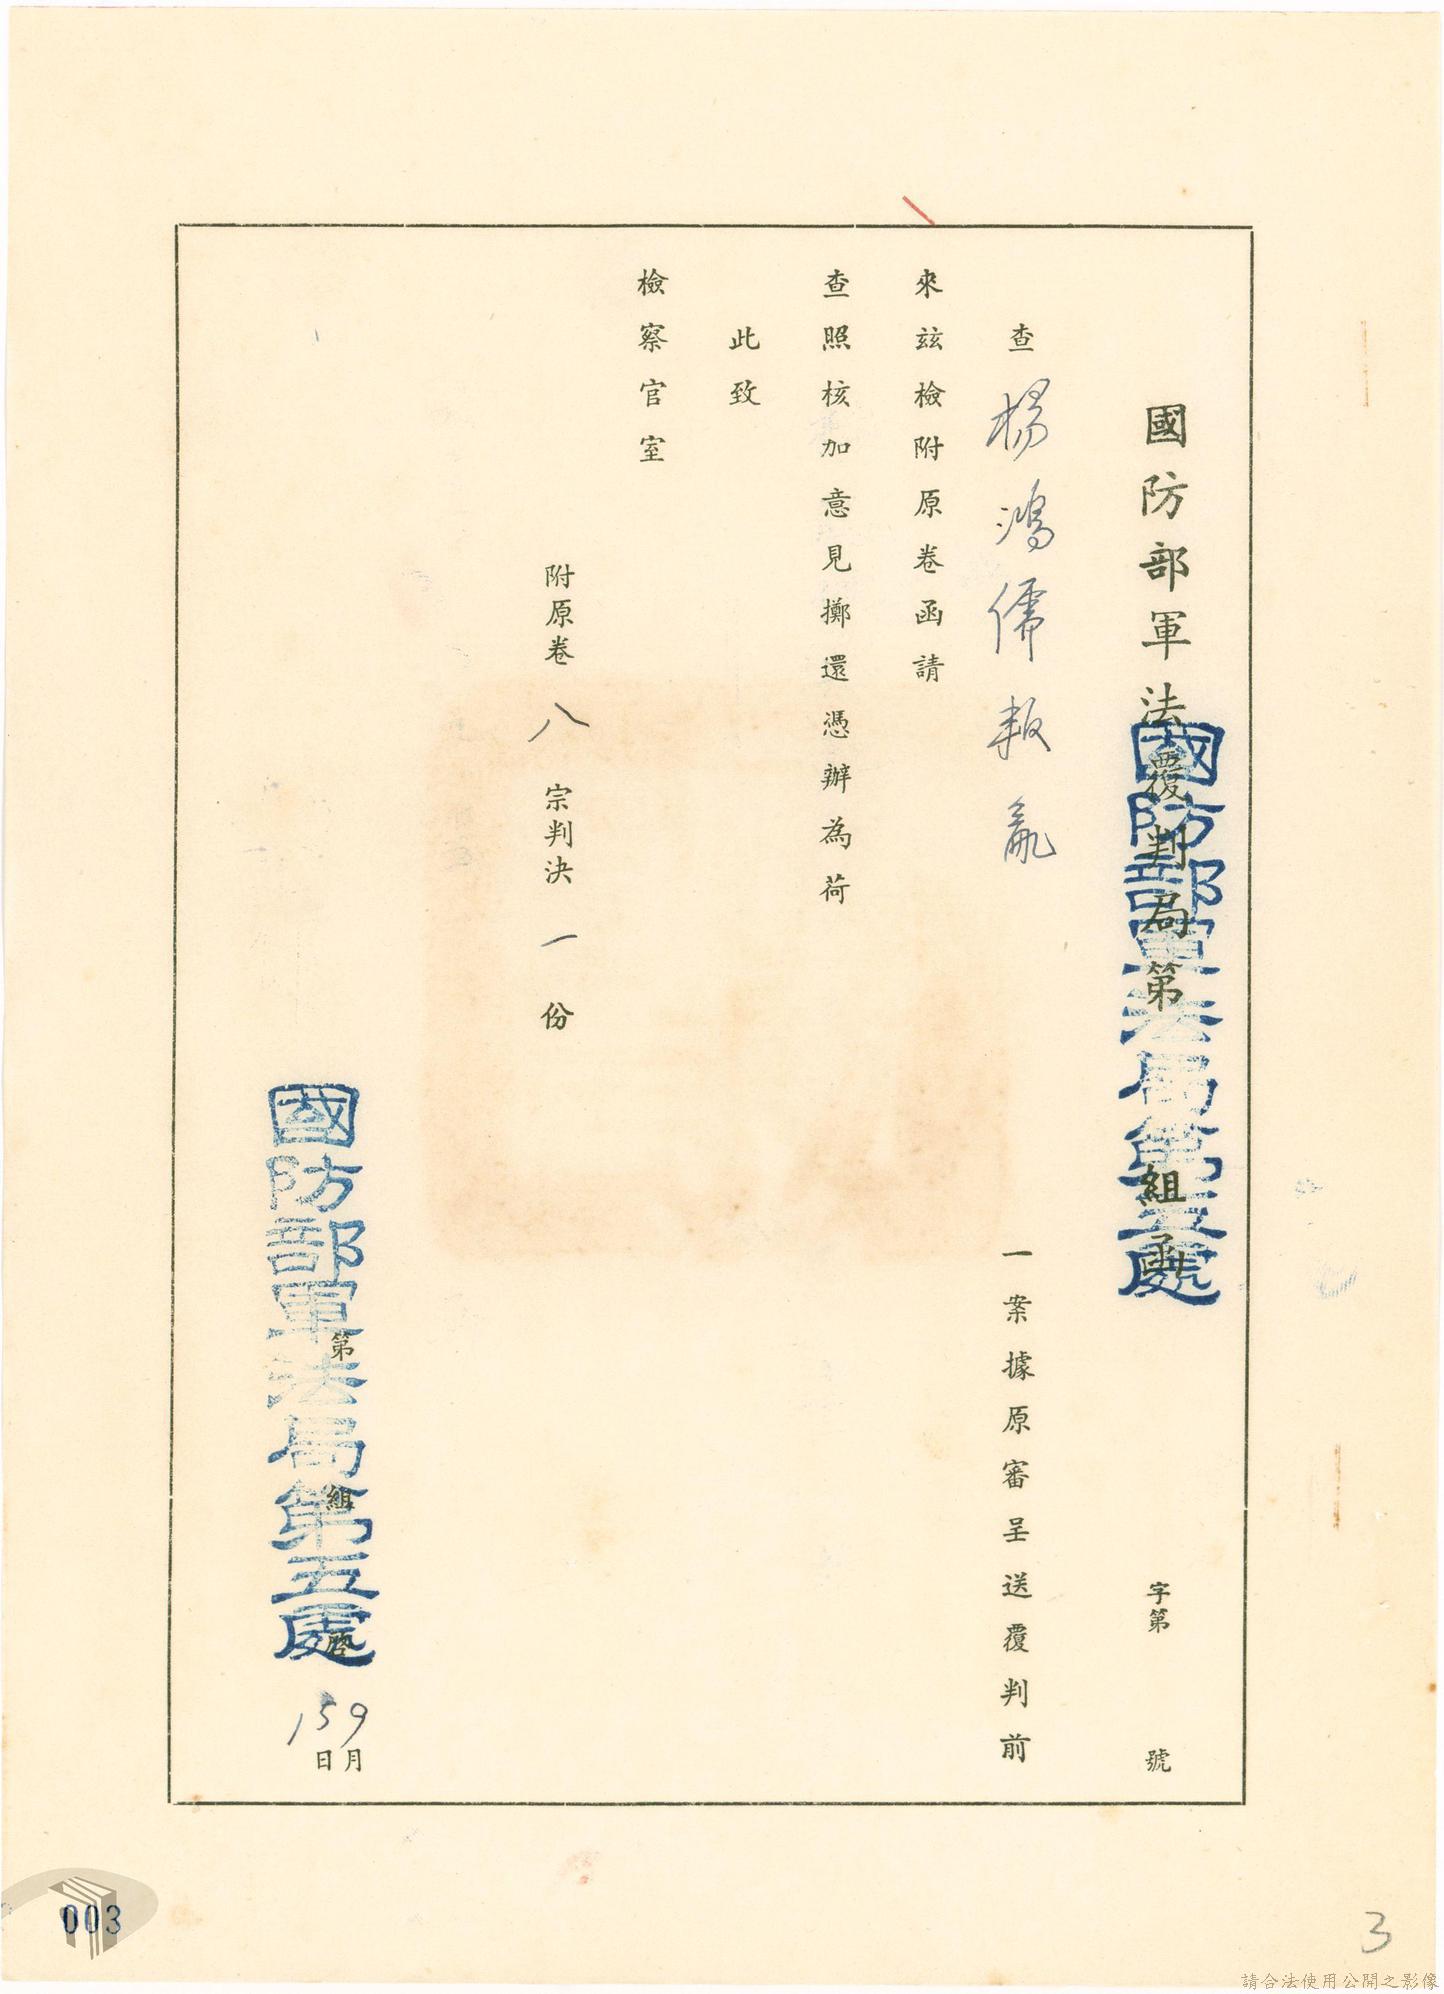 國防部軍法覆判局第 組函
國防部軍法局第五處
字第 號
查 楊鴻儒叛亂 一案據原審呈送覆判前
來茲檢附原卷函請
查照核加意見擲還憑辦為荷
此致
檢察官室
附原卷 八 宗判決 一 份
國防部軍法局第五處
第 組 啓
9月
15日
003
3
請合法使用公開之影像